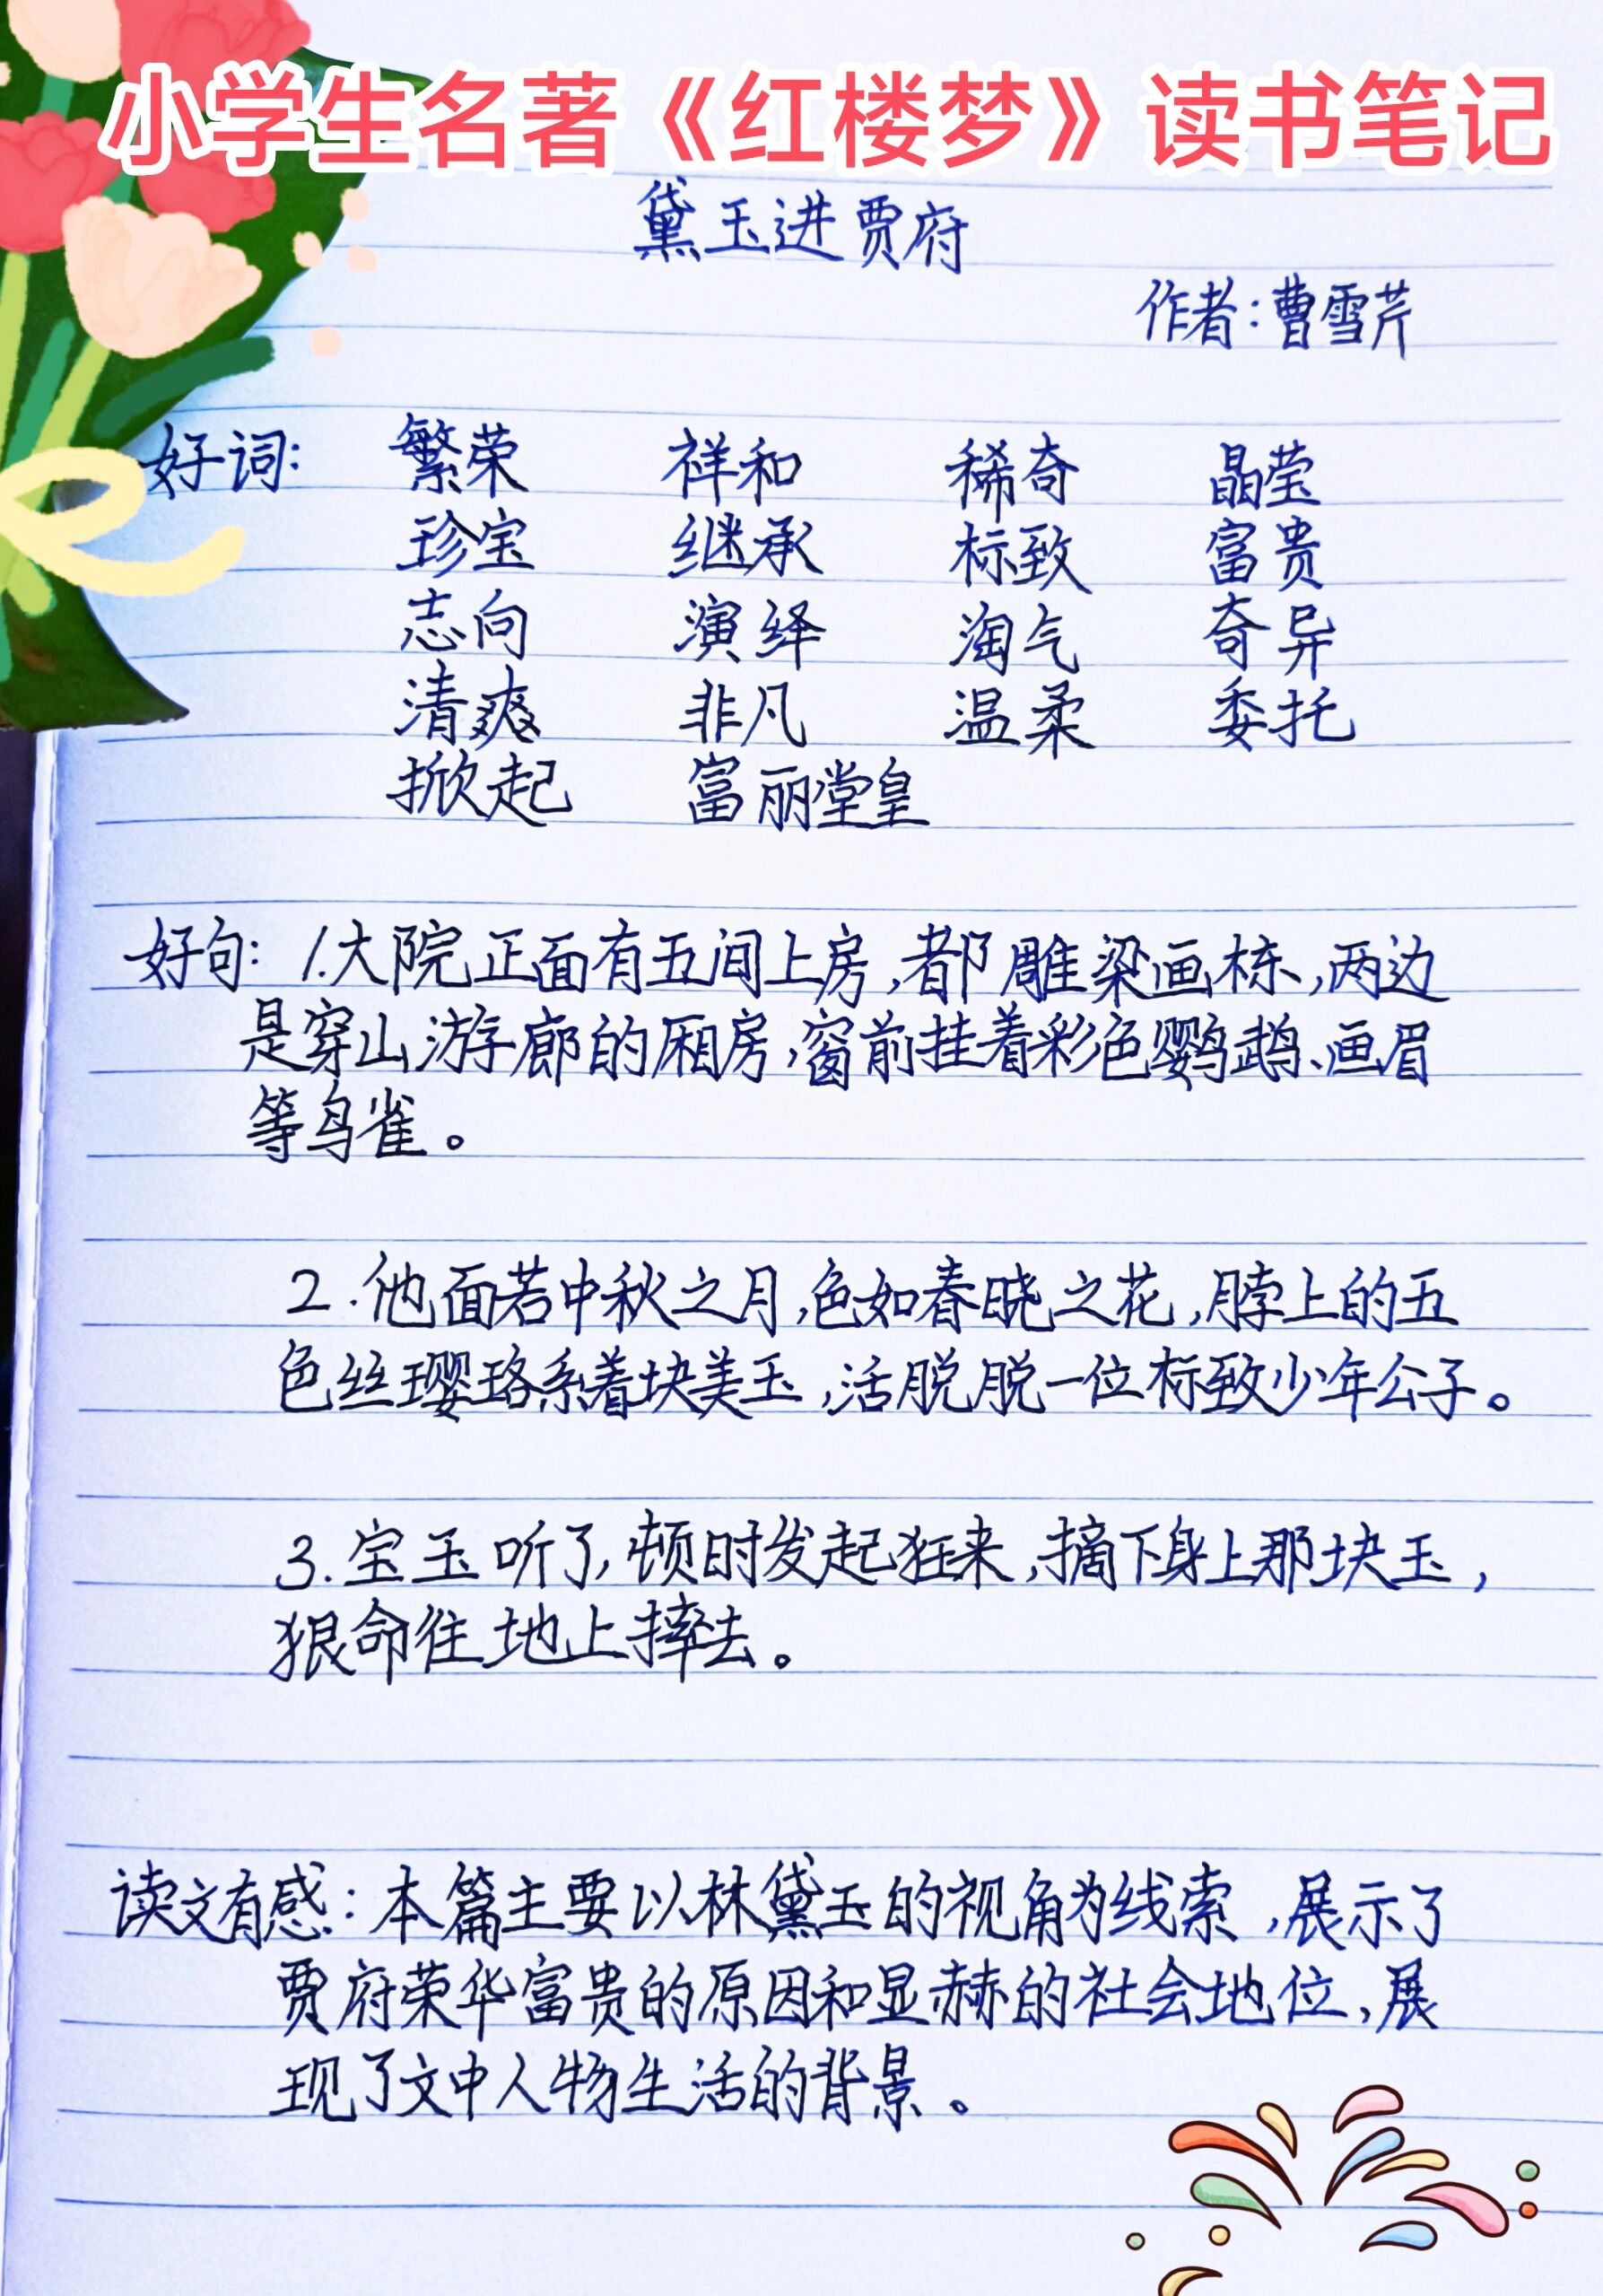 小学生名著《红楼梦》读书笔记
黛玉进贾府
作者:曹雪芹
好词: 繁荣 祥和 稀奇 晶莹
珍宝 继承 标致 富贵
志向 演绎 淘气 奇异
清爽 非凡 温柔 委托
掀起 富丽堂皇
好句: 1.大院正面有五间上房,都雕梁画栋,两边
是穿山游廊的厢房,窗前挂着彩色鹦鹉、画眉
等鸟雀。
2.他面若中秋之月,色如春晓之花,脖上的五
色丝璎珞系着块美玉,活脱脱一位标致少年公子。
3.宝玉听了,顿时发起狂来,摘下身上那块玉,
狠命往地上摔去。
读文有感:本篇主要以林黛玉的视角为线索,展示了
贾府荣华富贵的原因和显赫的社会地位,展
现了文中人物生活的背景。